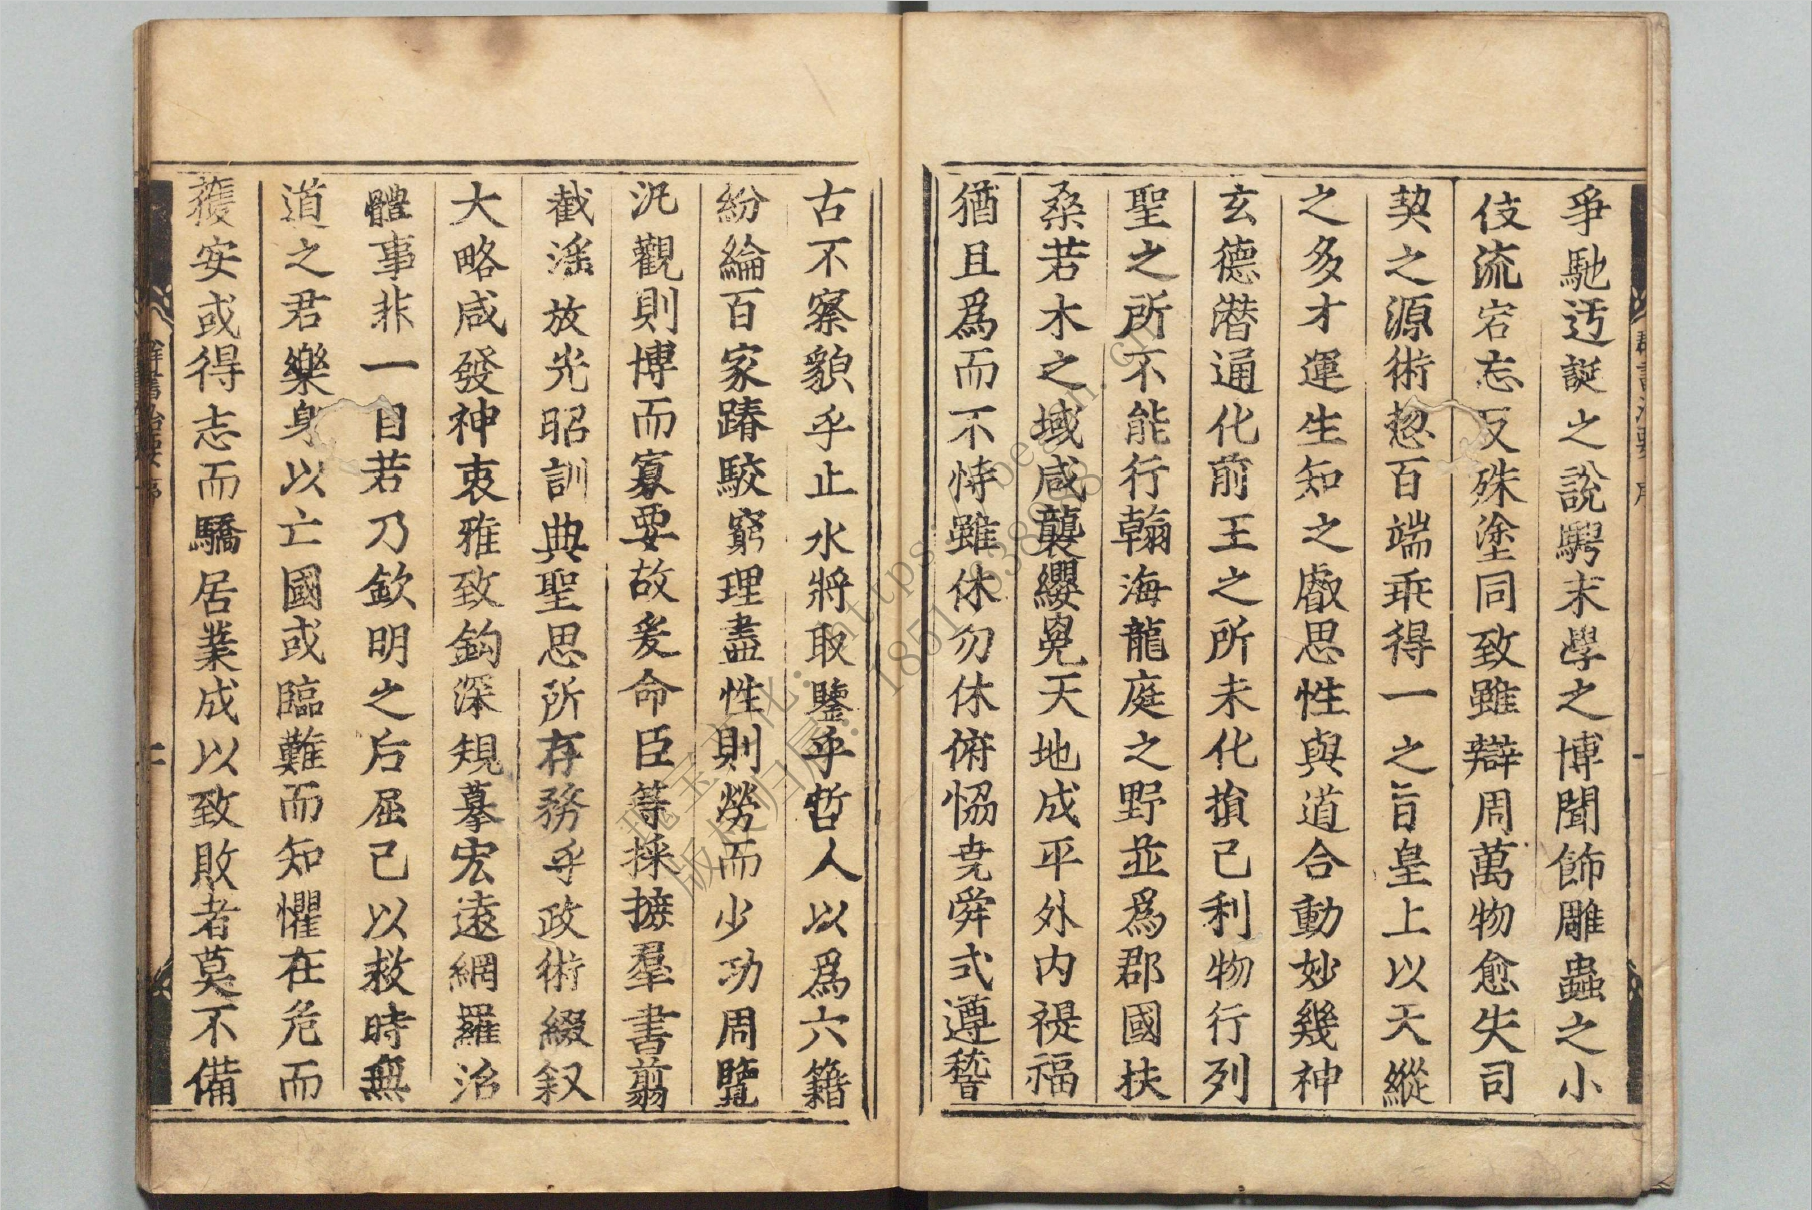 爭馳迃誕之說騁末學之博聞飾雕蟲之小
伎流宕忘反殊塗同致雖辯周萬物愈失司
契之源術揔百端乖得一之旨皇上以天縱
之多才運生知之叡思性與道合動妙幾神
玄德潜通化前王之所未化損己利物行列
聖之所不能行翰海龍庭之野並爲郡國扶
桑若木之域咸襲纓冕天地成平外内禔福
猶且爲而不恃雖休勿休俯恊尭舜式遵稽
古不察貌乎止水將取鑒乎哲人以爲六籍
紛綸百家踳駮窮理盡性則勞而少功周覽
汎觀則博而寡要故爰命臣等採摭羣書翦
截滛放光昭訓典聖思所存務乎政術綴叙
大略咸發神衷雅致鈎深規摹宏遠網羅治
體事非一目若乃欽明之后屈己以救時無
道之君樂身以亡國或臨難而知懼在危而
獲安或得志而驕居業成以致敗者莫不備
群書治要序
二